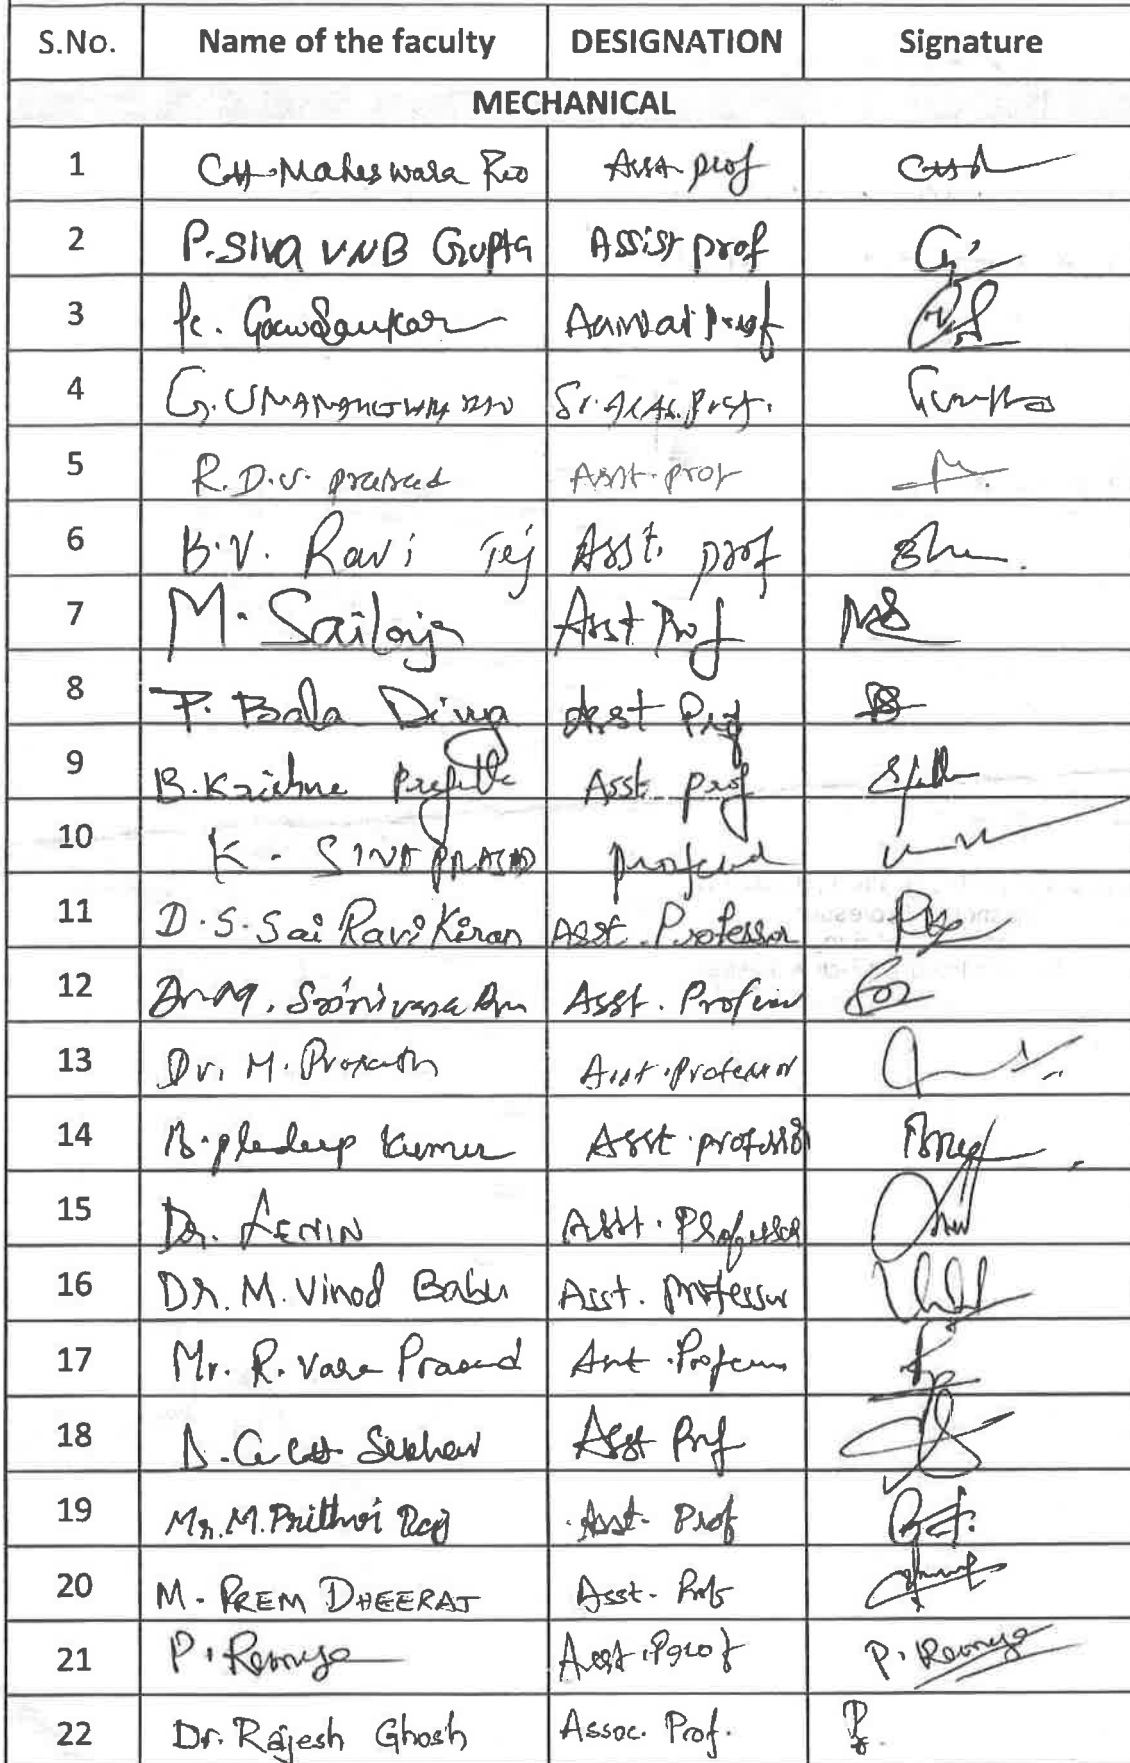 S.No. Name of the faculty DESIGNATION Signature
MECHANICAL
1 CH. Maheswara Rao Asst prof
2 P. SIVA VNB Gupta Assist prof
3 Gowri Sankar prof
4 G. UMAMAHESWARA RAO Sr. Asst. prof.
5 R.D.V. prasad Asst. prof
6 B.V. Ravi Tej Asst. prof
7 M. Sailaja Asst Prof MS
8 P. Bala Divya Asst Prof
9 B. Krishna Asst prof
10 K. SIVA PRASAD professor
11 D.S. Sai Ravi Kiran Asst. Professor
12 Dr. M. Srinivasa Asst. Professor
13 Dr. M. Prasanth Asst. Professor
14 B. pradeep Kumar Asst. professor
15 Dr. LENIN Asst. Professor
16 Dr. M. Vinod Babu Asst. Professor
17 Mr. R. Vara Prasad Asst. Professor
18 D. Sekhar Asst Prof
19 Mr. M. Prithvi Raj Asst. Prof
20 M. PREM DHEERAJ Asst. Prof
21 P. Ramya Asst. Prof P. Ramya
22 Dr. Rajesh Ghosh Assoc. Prof.